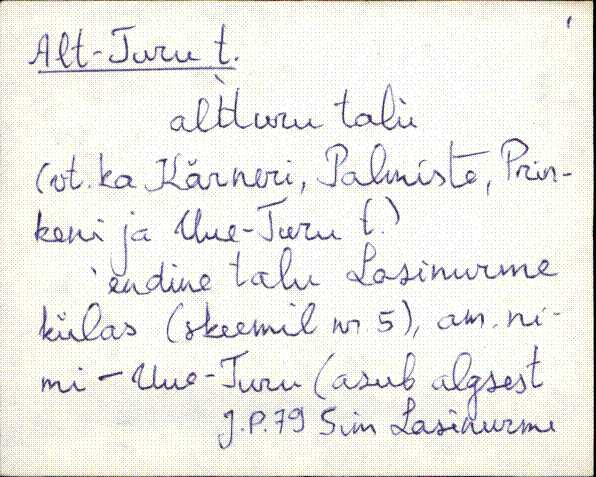 Alt-Turu t.
al̀tturu talu
(vt. ka Kärneri, Palmiste, Prin-
keni ja Uue-Turu t.)
endine talu Lasinurme
külas (skeemil nr. 5), am. ni-
mi - Uue-Turu (asub algsest
J.P. 79 Sim Lasinurme